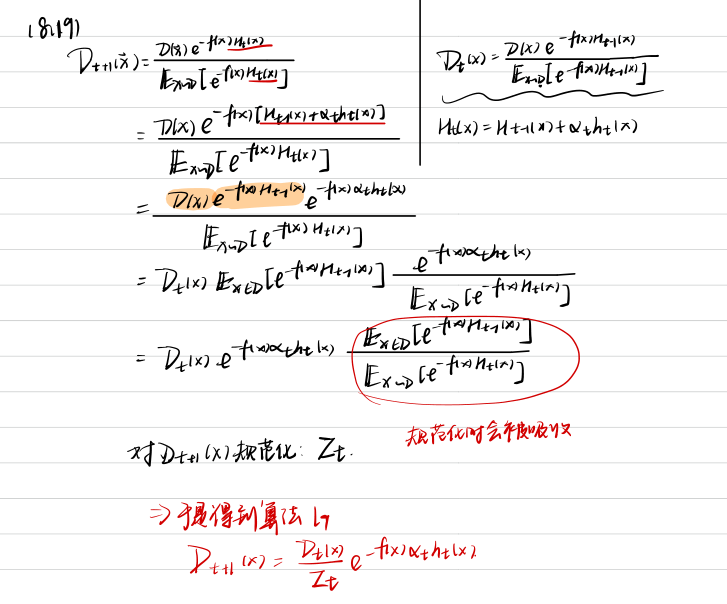 (8.19)
D_{t+1}(x⃗) = \frac{D(x) e^{-f(x)H_t(x)}}{E_{x∼D}[e^{-f(x)H_t(x)}]}
= \frac{D(x) e^{-f(x)[H_{t-1}(x)+α_t h_t(x)]}}{E_{x∼D}[e^{-f(x)H_t(x)}]}
= \frac{D(x) e^{-f(x)H_{t-1}(x)} e^{-f(x)α_t h_t(x)}}{E_{x∼D}[e^{-f(x)H_t(x)}]}
= D_t(x) E_{x∈D}[e^{-f(x)H_{t-1}(x)}] \frac{e^{-f(x)α_t h_t(x)}}{E_{x∼D}[e^{-f(x)H_t(x)}]}
= D_t(x) e^{-f(x)α_t h_t(x)} \frac{E_{x∈D}[e^{-f(x)H_{t-1}(x)}]}{E_{x∼D}[e^{-f(x)H_t(x)}]}
D_t(x) = \frac{D(x) e^{-f(x)H_{t-1}(x)}}{E_{x∼D}[e^{-f(x)H_{t-1}(x)}]}
H_t(x) = H_{t-1}(x) + α_t h_t(x)
规范化时会被吸收
对D_{t+1}(x)规范化: Z_t.
⇒ 于是得到算法
D_{t+1}(x) = \frac{D_t(x)}{Z_t} e^{-f(x)α_t h_t(x)}